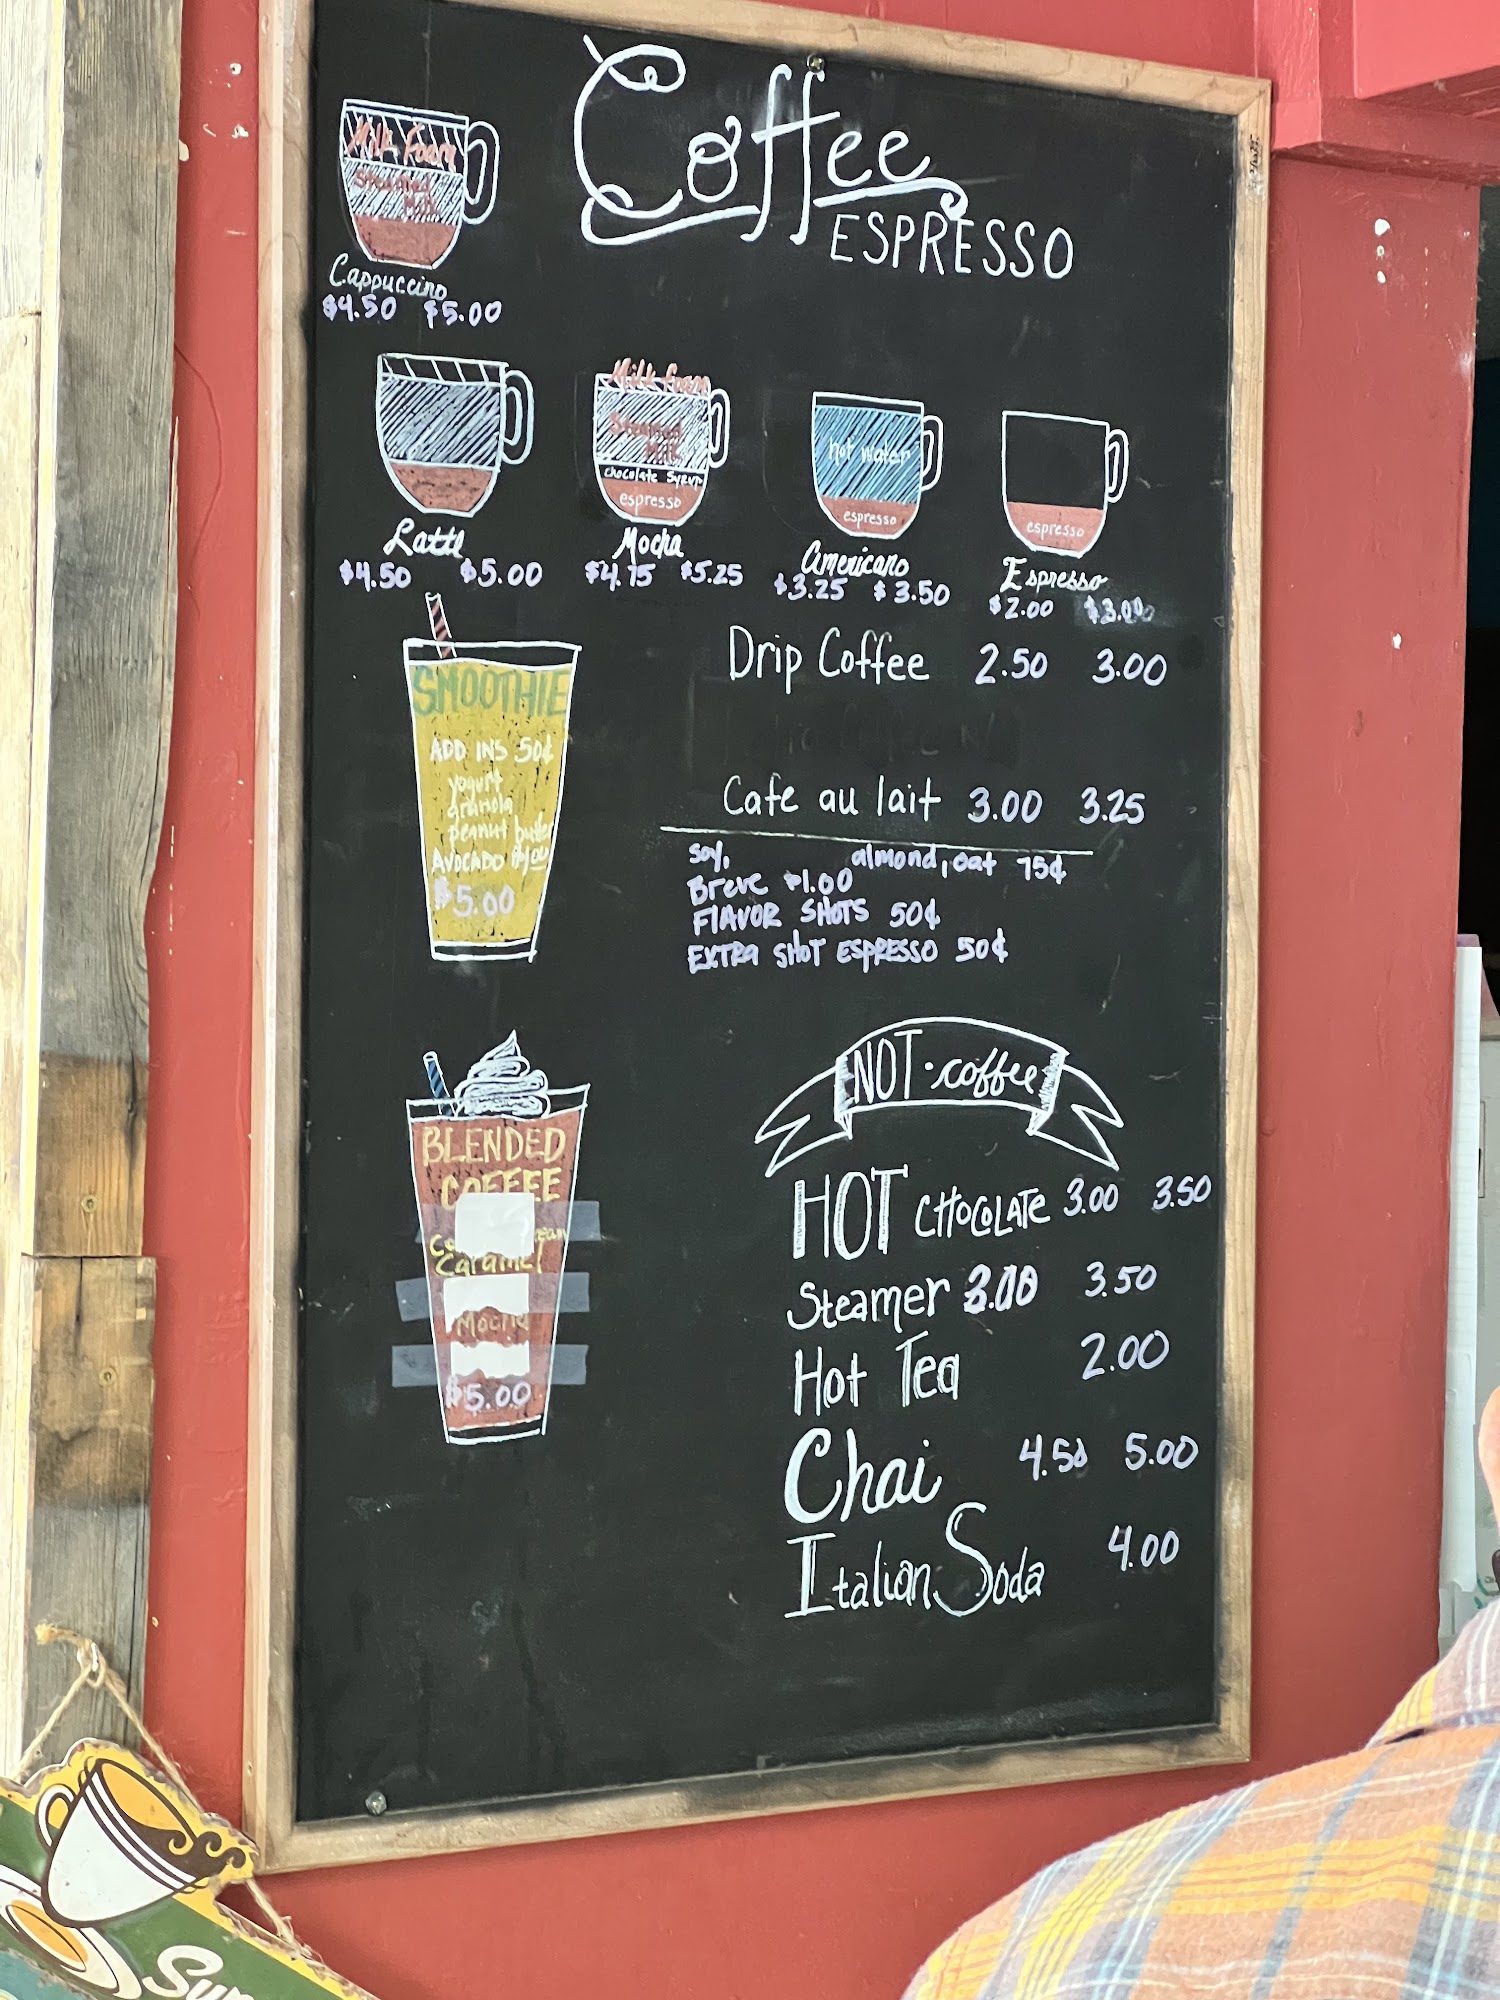 Coffee
ESPRESSO
Milk Foam
Steamed
Milk
Cappuccino
$4.50 $5.00
Latte
$4.50 $5.00
Milk foam
Steamed
Milk
chocolate syrup
espresso
Mocha
$4.75 $5.25
hot water
espresso
Americano
$3.25 $3.50
espresso
Espresso
$2.00 $3.00
Drip Coffee 2.50 3.00
Cafe au lait 3.00 3.25
soy, almond, oat 75¢
Breve $1.00
FLAVOR SHOTS 50¢
EXTRA SHOT ESPRESSO 50¢
SMOOTHIE
ADD INS 50¢
yogurt
granola
peanut butter
AVOCADO
$5.00
BLENDED
COFFEE
Caramel
Mocha
$5.00
NOT • coffee
HOT CHOCOLATE 3.00 3.50
Steamer 3.00 3.50
Hot Tea 2.00
Chai 4.50 5.00
Italian Soda 4.00